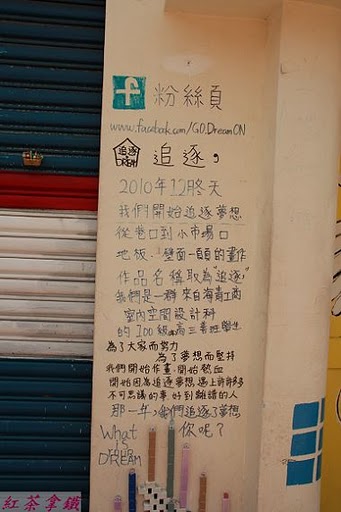 f 粉絲頁
www.facebook.com/GO.DreamON
追逐 DREAM 追逐,
2010年12月冬天
我們開始追逐夢想
從巷口到小市場口
地板、壁面一面面的畫作
作品名稱取為"追逐"
我們是一群來自海青工商
室內空間設計科
的100級高三善班學生
為了大家而努力
為了夢想而堅持
我們開始作畫,開始熱血
開始因為追逐夢想遇上許許多多
不可思議的事,好到離譜的人
那一年,我們追逐了夢想
What 你呢?
is
DREAM
紅茶拿鐵